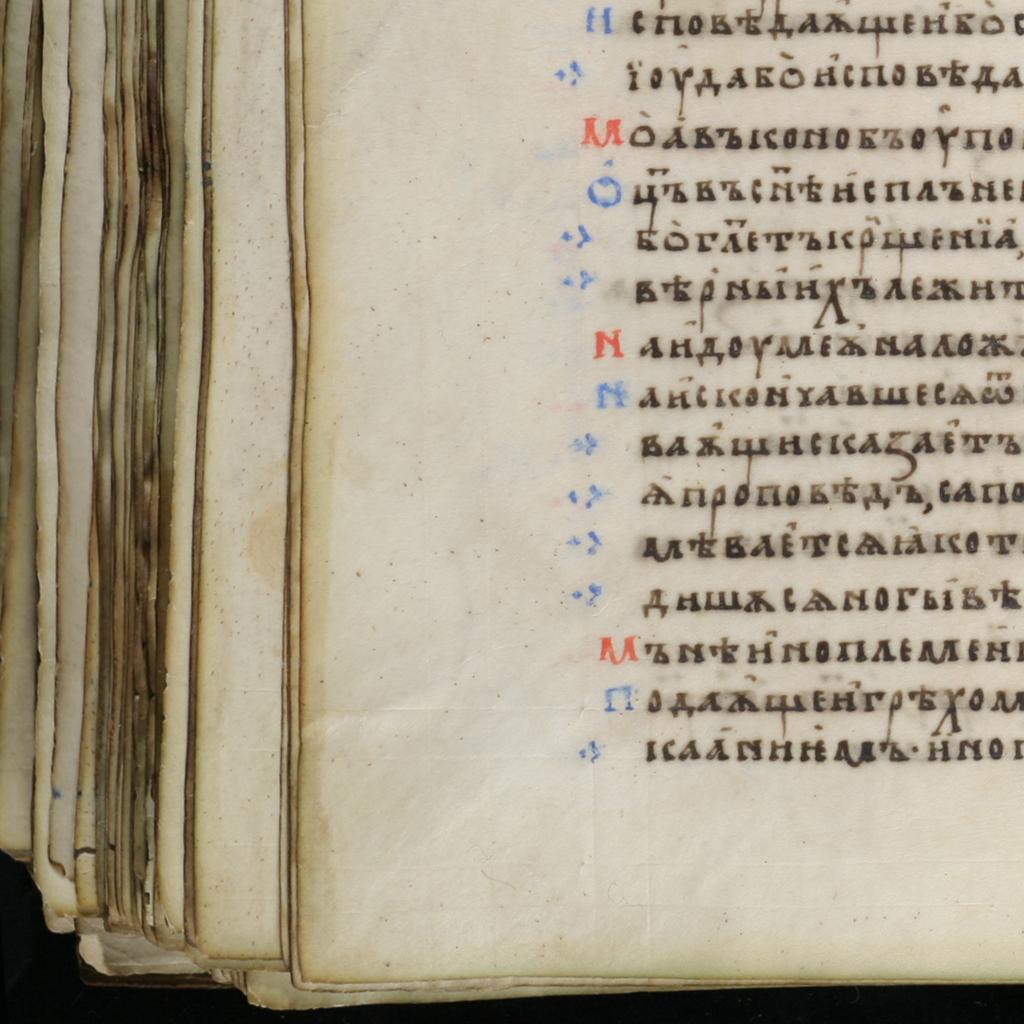 Исповѣдаѫщеи бо с
їоуда бо исповѣда
Моавъ конобъ оупо
Ѻц҃ъ въ сн҃ѣ исплъне
бо гл҃етъ кр҃щенїа
вѣрныихъ лежит
На идоумеѫ наложѫ
На искончавшесѧ ѿ
ваѫщи сказаетъ
ѫ проповѣдъ, сапо
мѣваетсѧ ꙗко т
дишѫ сѧ ногы вѣ
Мънѣ иноплемен
Подаѫщеи грѣхом
каанниимъ· иноп